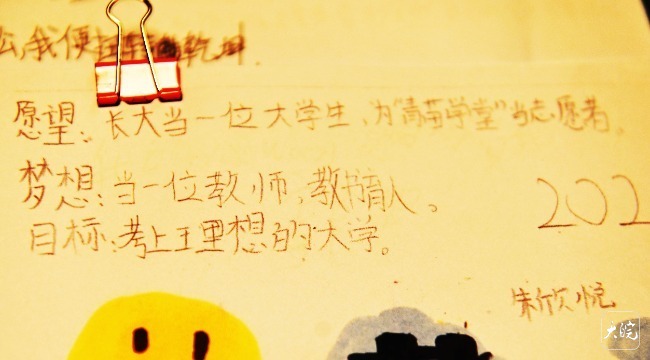 我便扭转乾坤.
愿望:长大当一位大学生,为"青苗学堂"当志愿者。
梦想:当一位教师,教书育人。
目标:考上王里想的大学。
202
朱欣悦
大皖